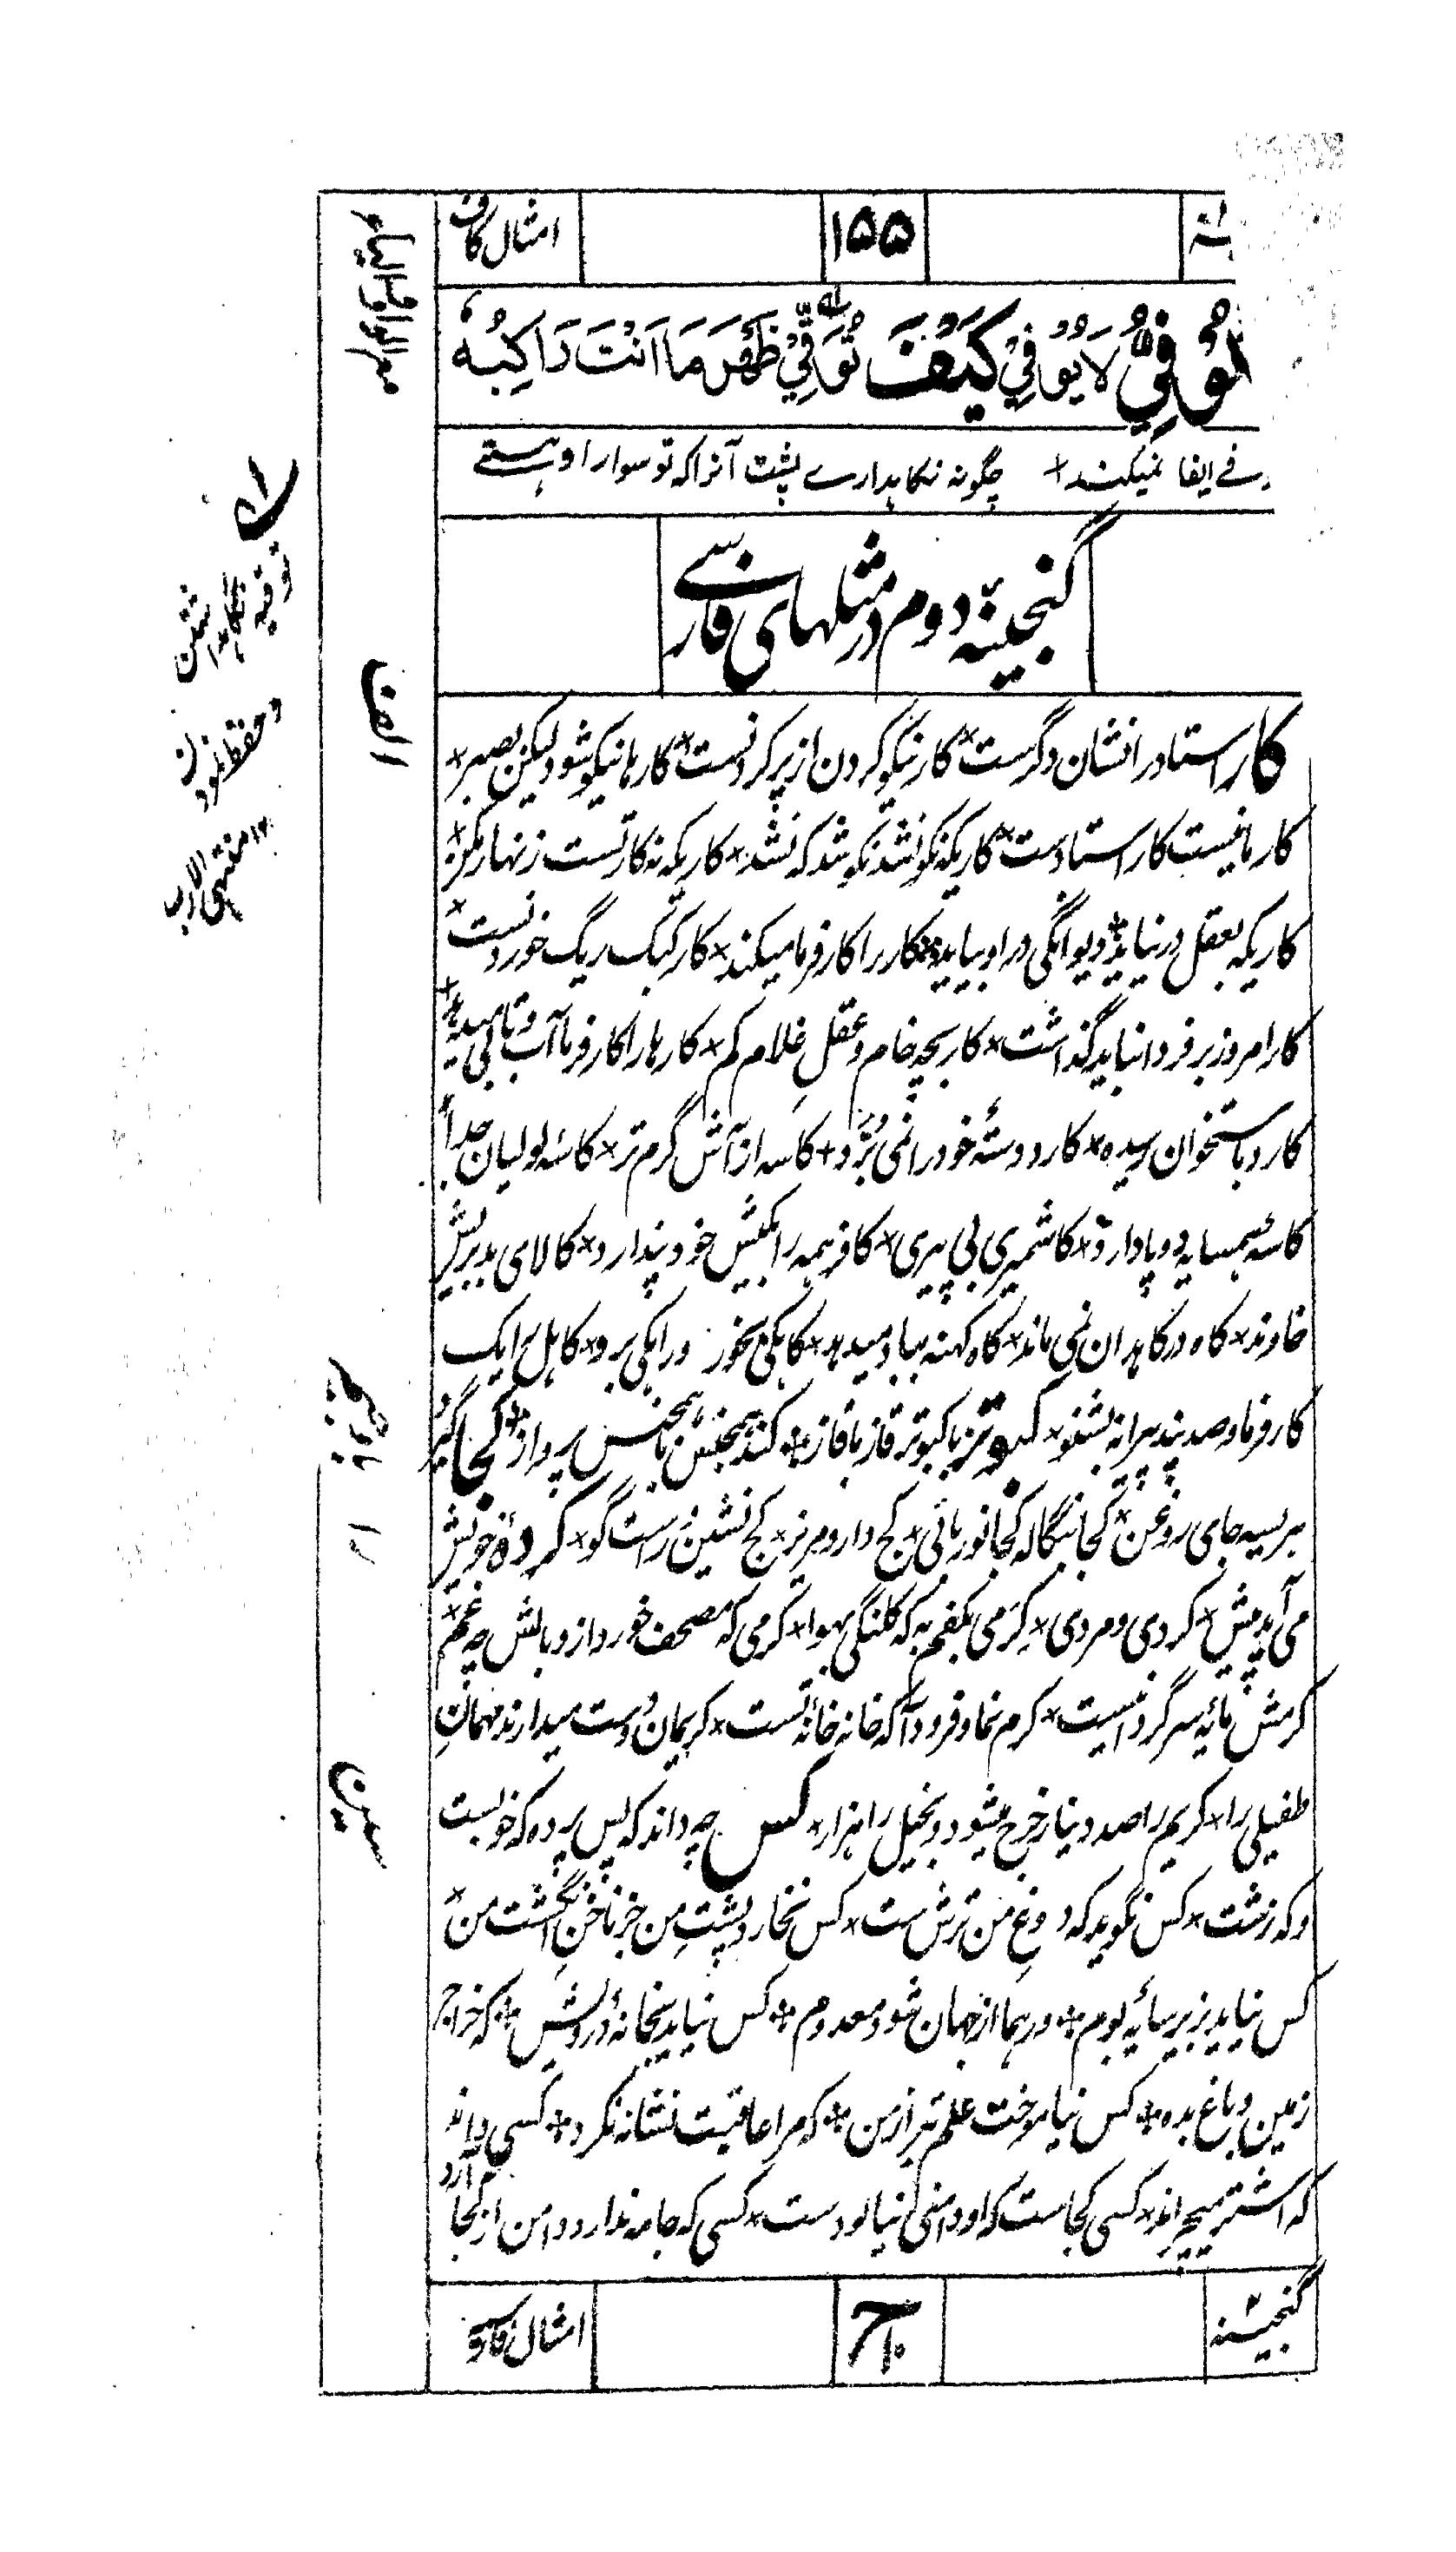 امثال کاف
۱۵۵
لَا يُوْفِيْ كَيْفَ تُوَقِّيْ ظَهْرَ مَا اَنْتَ رَاكِبُهٗ
فے ایفا نمیکند + چگونه نگاہدارے پشت آنرا که تو سوار او ہستے
گنجینۂ دوم در مثلہای فارسے
کار استاد را نشان دگرست × کار نیکو کردن از پر کردنست × کارہا نیکو شود لیکن بصبر ×
کار ما نیست کار استادست × کاریکه نکو نشد نکو شد که نشد × کاریکه نه کار تست زنہار مکن ×
کاریکه بعقل در نیاید × دیوانگی درو بیاید × کار را کارفرما میکند × کار کبک ریگ خوردنست ×
کار امروز بر فردا نباید گذاشت × کار بچه خام و عقلِ غلام کم × کارہا را کارفرما آب و تابی میدہد ×
کارد باستخوان رسیده × کارد دستۂ خود را نمی بُرّد + کاسه از آش گرم تر × کاسۂ لولیان جدا ×
کاسۂ ہمسایه دو پا دارد × کاشمیری بی پیری × کافر ہمه را بکیش خود پندارد × کالای بد بریش
خاوند × کاه در کاہدان نمی ماند × کاه کہنه بباد میدہد × کاہکی بخور ورایکی برو × کاہل را یک
کار فرما و صد پند پیرانه بشنو × کبوتر با کبوتر قاز با قاز × کند ہمجنس با ہمجنس پرواز × کجا گیرد
ہریسه جای روغن × کجا بنگاله کجا نورہائی × کج دار و مریز × کج نشین و راست گو × کردۂ خویش
می آید پیش × کردی و مردی × کِرَمی بکفم به که کلنگی بہوا × کرمی که مصحف خورد از وبالش چه غم ×
کرمش مائۂ سرگردانیست × کرم نما و فرود آ که خانه خانۂ تست × کریمان دوست میدارند مہمانِ
طفیلی را × کریم را صد دینار خرج میشود و بخیل را ہزار × کس چه داند که پس پرده که خوبست
و که زشت × کس نگوید که دوغ من ترش ست × کس نخارد پشتِ من جز ناخنِ انگشت من ×
کس نیاید بزیر سایۂ بوم × ور ہما از جہان شود معدوم × کس نیاید بخانۂ درویش × که خراج
زمین و باغ بده × کس نیاموخت علم تیر از من × که مرا عاقبت نشانه نکرد × کسی داند
که اشتر میچراند × کسی کجاست که او دامنی نیالودست × کسی که جامه ندارد دامن از کجا آرد
گنجینه ۲
امثال فارسے
الف
سین
ف۱ توقیه نگاہداشتن
و حفظ نمودن
۱۲ منتہی الارب